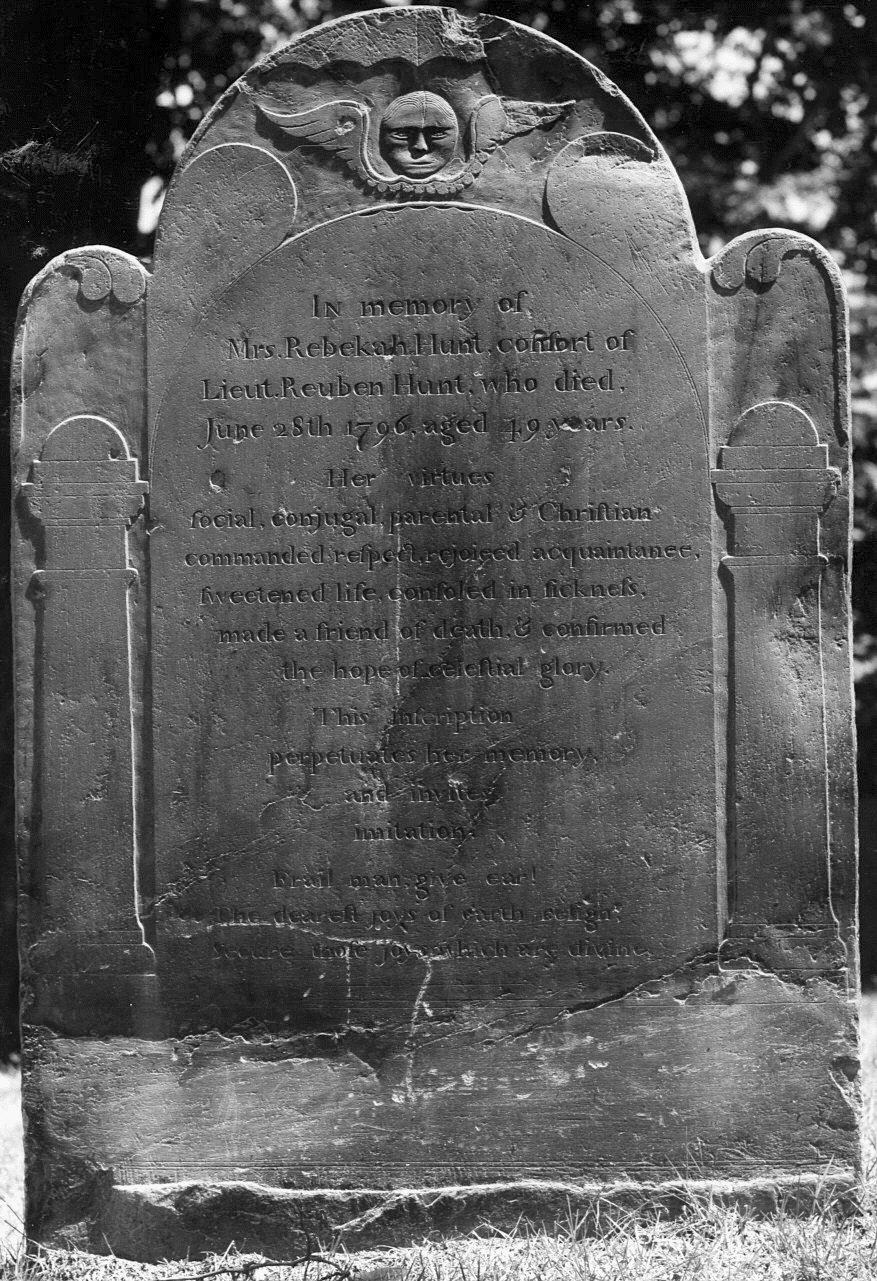 In memory of
Mrs. Rebekah Hunt, conſort of
Lieut. Reuben Hunt, who died,
June 28th 1796, aged 49 years.
Her virtues
ſocial, conjugal, parental & Chriſtian
commanded reſpect, rejoiced acquaintance,
ſweetened life, conſoled in ſickneſs,
made a friend of death, & confirmed
the hope of celeſtial glory.
This inſcription
perpetuates her memory,
and invites
imitation.
Frail man, give ear!
The deareſt joys of earth reſign;
Secure thoſe joys which are divine.